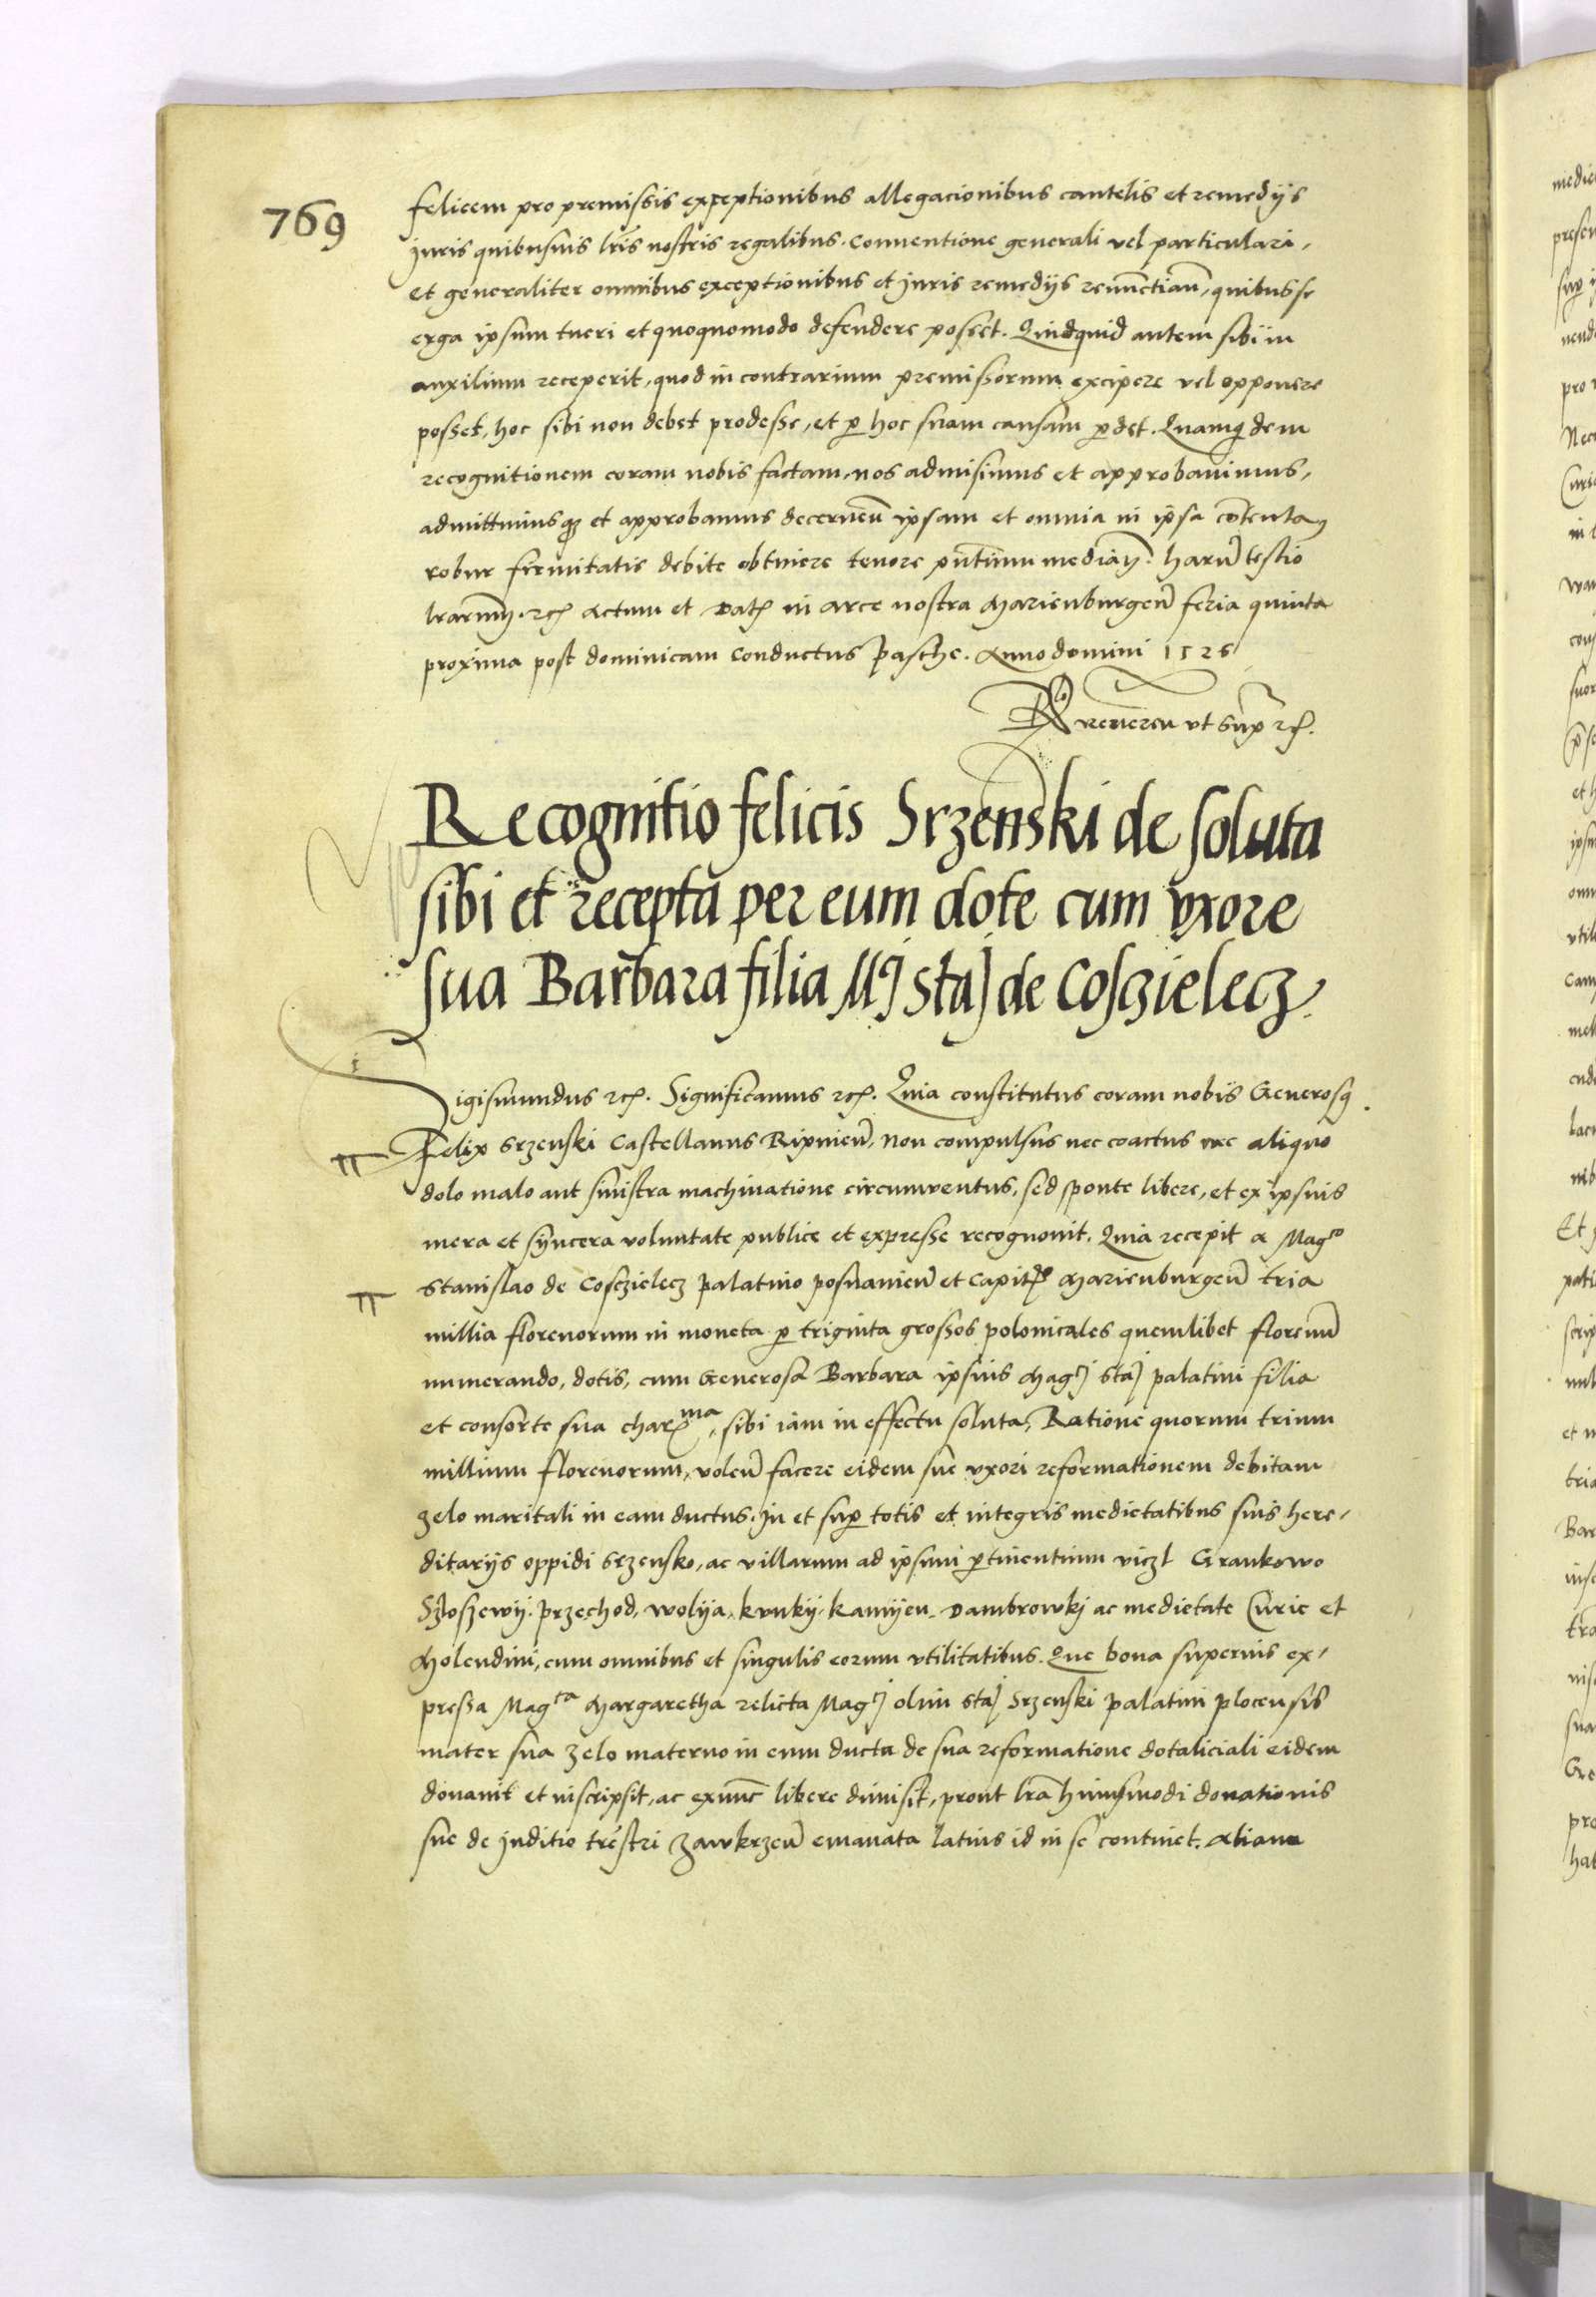 769
felicem pro premissis exceptionibus allegacionibus cautelis et remedijs
juris quibusuis lr̃is nostris regalibus. Conuentione generali vel particulari,
et generaliter omnibus exceptionibus et juris remedijs renunctiaũ, quibus se
erga ipsum tueri et quoquomodo defendere posset. Quidquid autem sibi in
auxilium receperit, quod in contrarium premissorum excipere vel opponere
posset, hoc sibi non debet prodesse, et p̱ hoc suam causam p̱det. Quamq̃dem
recognitionem coram nobis factam, nos admisimus et approbauimus,
admittimusq̃ et approbamus decerneñ ipsam et omnia in ipsa cõtenta
robur firmitatis debite obtinere tenore pñtium media͠n. Haruɱ testio
lrarum. etc. Actum et Dat̃ in arce nostra Marienburgeñ feria quinta
proxima post dominicam Conductus Pasche. Anno domini 1526
Rlo reuereñ vt sup̃ etc.
Recognitio felicis Srzenski de soluta
sibi et recepta per eum dote cum vxore
sua Barbara filia M̃j Staj de Cosczielecz.
Sigismundus etc. Significamus etc. Quia constitutus coram nobis Generosq
Felix Srzenski Castellanus Ripineñ, non compulsus nec coactus nec aliquo
dolo malo aut sinistra machinatione circumuentus, sed sponte libere, et ex ipsuis
mera et syncera voluntate publice et expresse recognouit. Quia recepit a Magco
Stanislao de Cosczielecz palatino posnanieñ et Capit̃o Marienburgeñ tria
millia florenorum in moneta p̱ triginta grossos polonicales quemlibet florenũ
numerando, dotis, cum Generosa Barbara ipsius Mag̃cj Staj palatini filia
et consorte sua charma, sibi iam in effectu soluta, Ratione quorum trium
millium florenorum, voleñ facere eidem sue vxori reformationem debitam
zelo maritali in eam ductus, In et sup̱ totis et integris medietatibus suis here-
ditarijs oppidi Srzensko, ac villarum ad ipsum p̱tinentium viczl Grankowo
Szloszewij. Przechod, wolya, krnky. kamyen. Dambrowkj ac medietate Curie et
Molendini, cum omnibus et singulis eorum vtilitatibus. Que bona superius ex-
pressa Magca Margaretha relicta Magcj olim Staj Srzenski palatini plocensis
mater sua zelo materno in eum ducta de sua reformatione dotaliciali eidem
donauit et inscripsit, ac exnũc libere dimisit, prout lr̃a huiusmodi donationis
sue de juditio tr̃estri Zawkrzeñ emanata latius id in se continet. Aliam